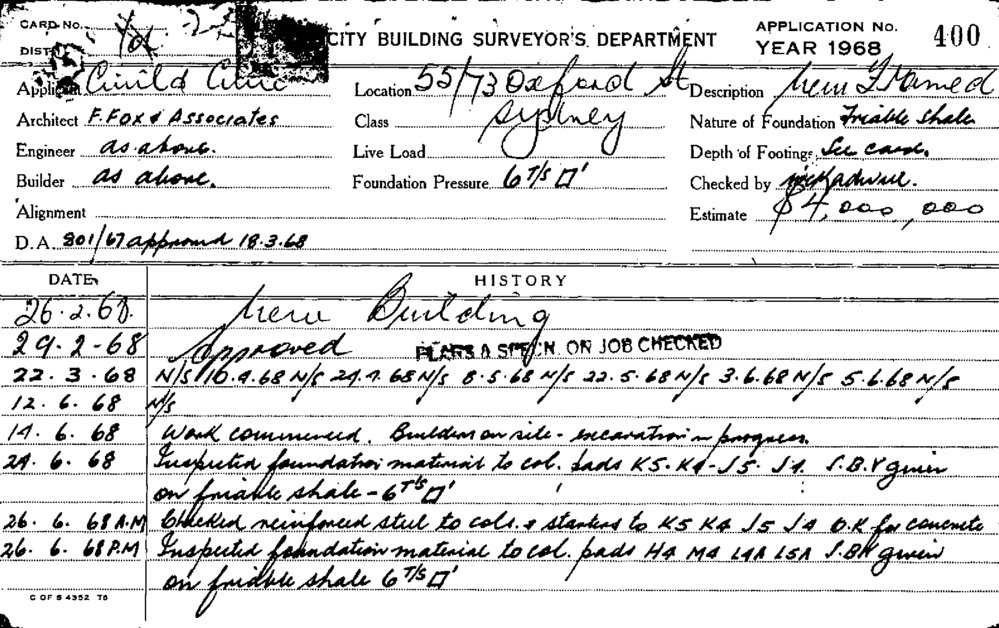 CARD No. CITY BUILDING SURVEYOR'S DEPARTMENT APPLICATION No. 400
DIST. YEAR 1968
Applicant Civil & Civic Location 55/73 Oxford St Description New Framed
Architect F. Fox & Associates Class Sydney Nature of Foundation Friable Shale
Engineer as above. Live Load Depth of Footings See card.
Builder as above. Foundation Pressure 6 T/S □' Checked by
Alignment Estimate $4,000,000
D.A. 801/67 approved 18.3.68
DATE HISTORY
26.2.68. New Building
29-2-68 Approved PLANS & SPEC'N. ON JOB CHECKED
22.3.68 N/S 10.4.68 N/S 24.4.68 N/S 8.5.68 N/S 22.5.68 N/S 3.6.68 N/S 5.6.68 N/S
12.6.68 N/S
14.6.68 Work commenced. Builders on site - excavation in progress.
24.6.68 Inspected foundation material to col. pads K5-K4-J5-J4. S.B.V given
on friable shale - 6 T/S □'
26.6.68 A.M Checked reinforced steel to cols. & starters to K5 K4 J5 J4 O.K for concrete
26.6.68 P.M Inspected foundation material to col. pads H4 M4 L4A L5A S.B.V given
on friable shale 6 T/S □'
C OF S 4352 78